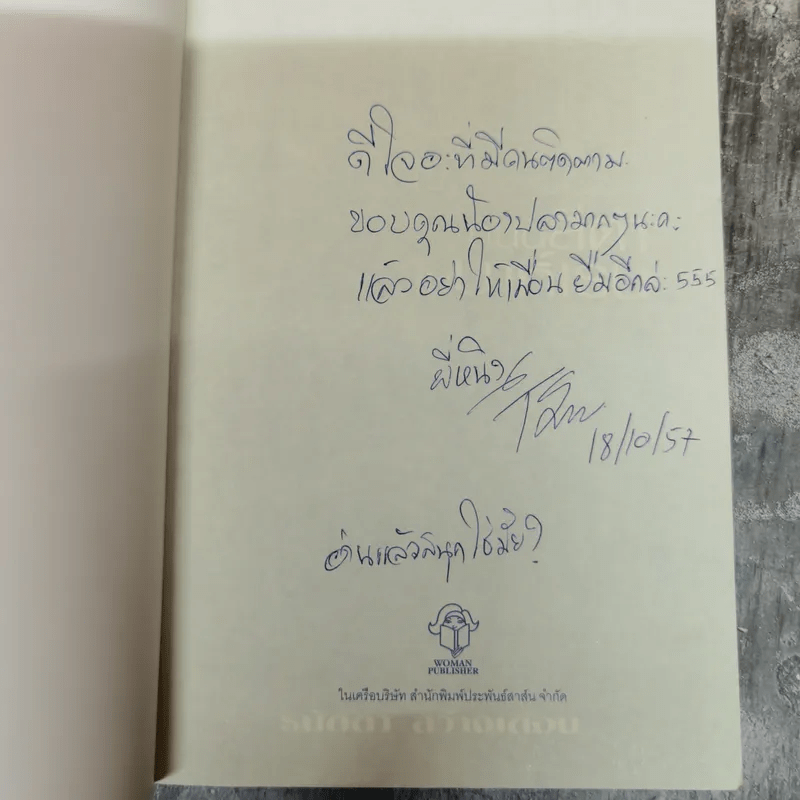 ดีใจอะที่มีคนติดตาม
ขอบคุณน้องปลามากๆนะคะ
แล้วอย่าให้เพื่อนยืมอีกล่ะ 555
พี่หนิง
18/10/57
อ่านแล้วสนุกใช่มั้ย?
WOMAN
PUBLISHER
ในเครือบริษัท สำนักพิมพ์ประพันธ์สาส์น จำกัด